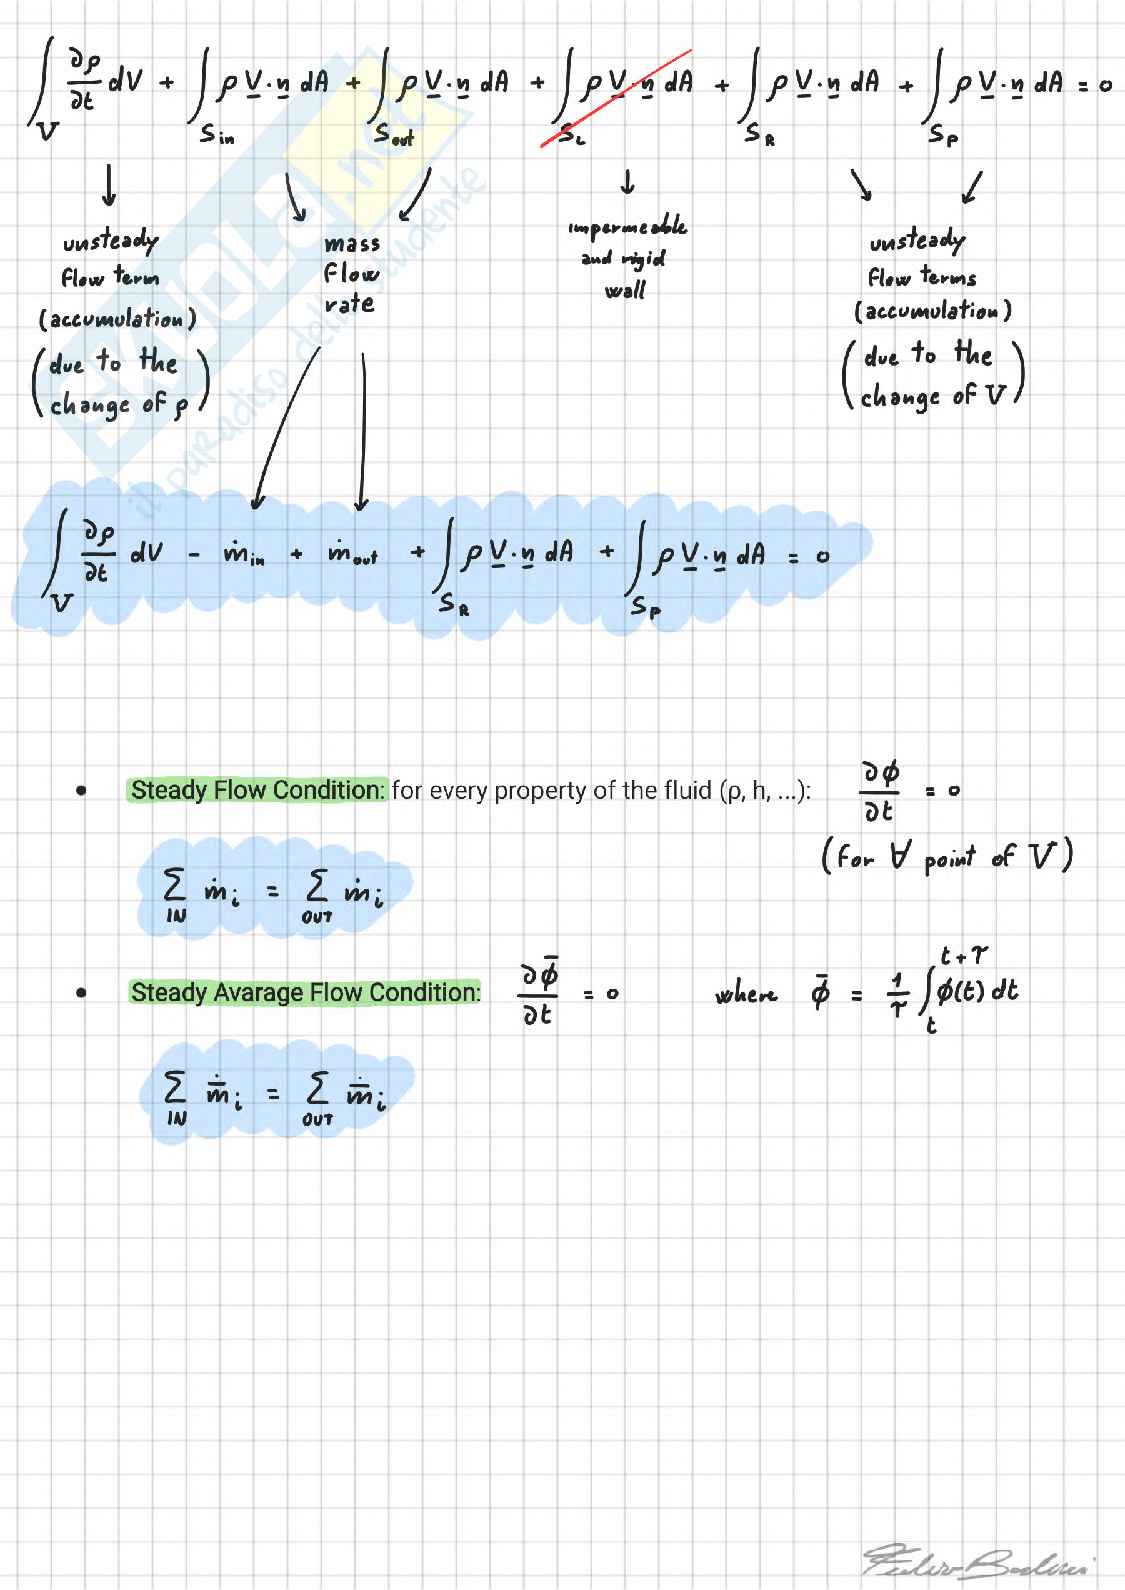 ∫_V ∂ρ/∂t dV + ∫_{S_in} ρ V·n dA + ∫_{S_out} ρ V·n dA + ∫_{S_L} ρ V·n dA + ∫_{S_R} ρ V·n dA + ∫_{S_P} ρ V·n dA = 0
unsteady flow term (accumulation) (due to the change of ρ)
mass flow rate
impermeable and rigid wall
unsteady flow terms (accumulation) (due to the change of V)
SKUOLA.net
il paradiso dello studente
∫_V ∂ρ/∂t dV - ṁ_in + ṁ_out + ∫_{S_R} ρ V·n dA + ∫_{S_P} ρ V·n dA = 0
• Steady Flow Condition: for every property of the fluid (ρ, h, ...): ∂ϕ/∂t = 0
(for ∀ point of V)
∑_IN ṁ_i = ∑_OUT ṁ_i
• Steady Avarage Flow Condition: ∂ϕ̄/∂t = 0 where ϕ̄ = 1/τ ∫_t^{t+τ} ϕ(t) dt
∑_IN ṁ̄_i = ∑_OUT ṁ̄_i